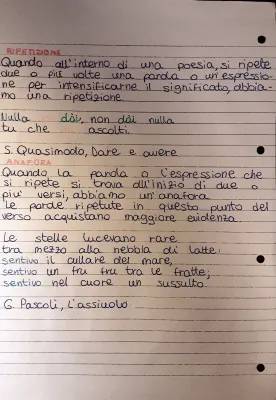 RIPETIZIONE
Quando all'interno di una poesia, si ripete
due o più volte una parola o un'espressio-
ne per intensificarne il significato, abbia-
mo una ripetizione.
Nulla dài, non dài nulla
tu che ascolti.
S. Quasimodo, Dare e avere
ANAFORA
Quando la parola o l'espressione che
si ripete si trova all'inizio di due o
più versi, abbiamo un'anafora.
Le parole ripetute in questo punto del
verso acquistano maggiore evidenza.
Le stelle lucevano rare
tra mezzo alla nebbia di latte:
sentivo il cullare del mare,
sentivo un fru fru tra le fratte;
sentivo nel cuore un sussulto.
G. Pascoli, L'assiuolo